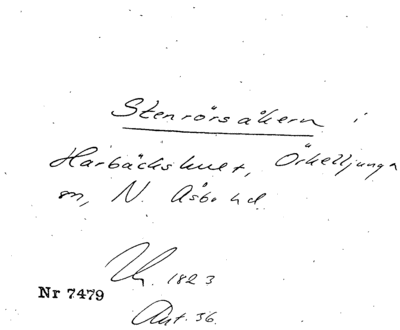 Stenrörsåkern i
Harbäckshult, Örkelljunga
sn, N. Åsbo hd.
1823
Nr 7479
Ant. 36.